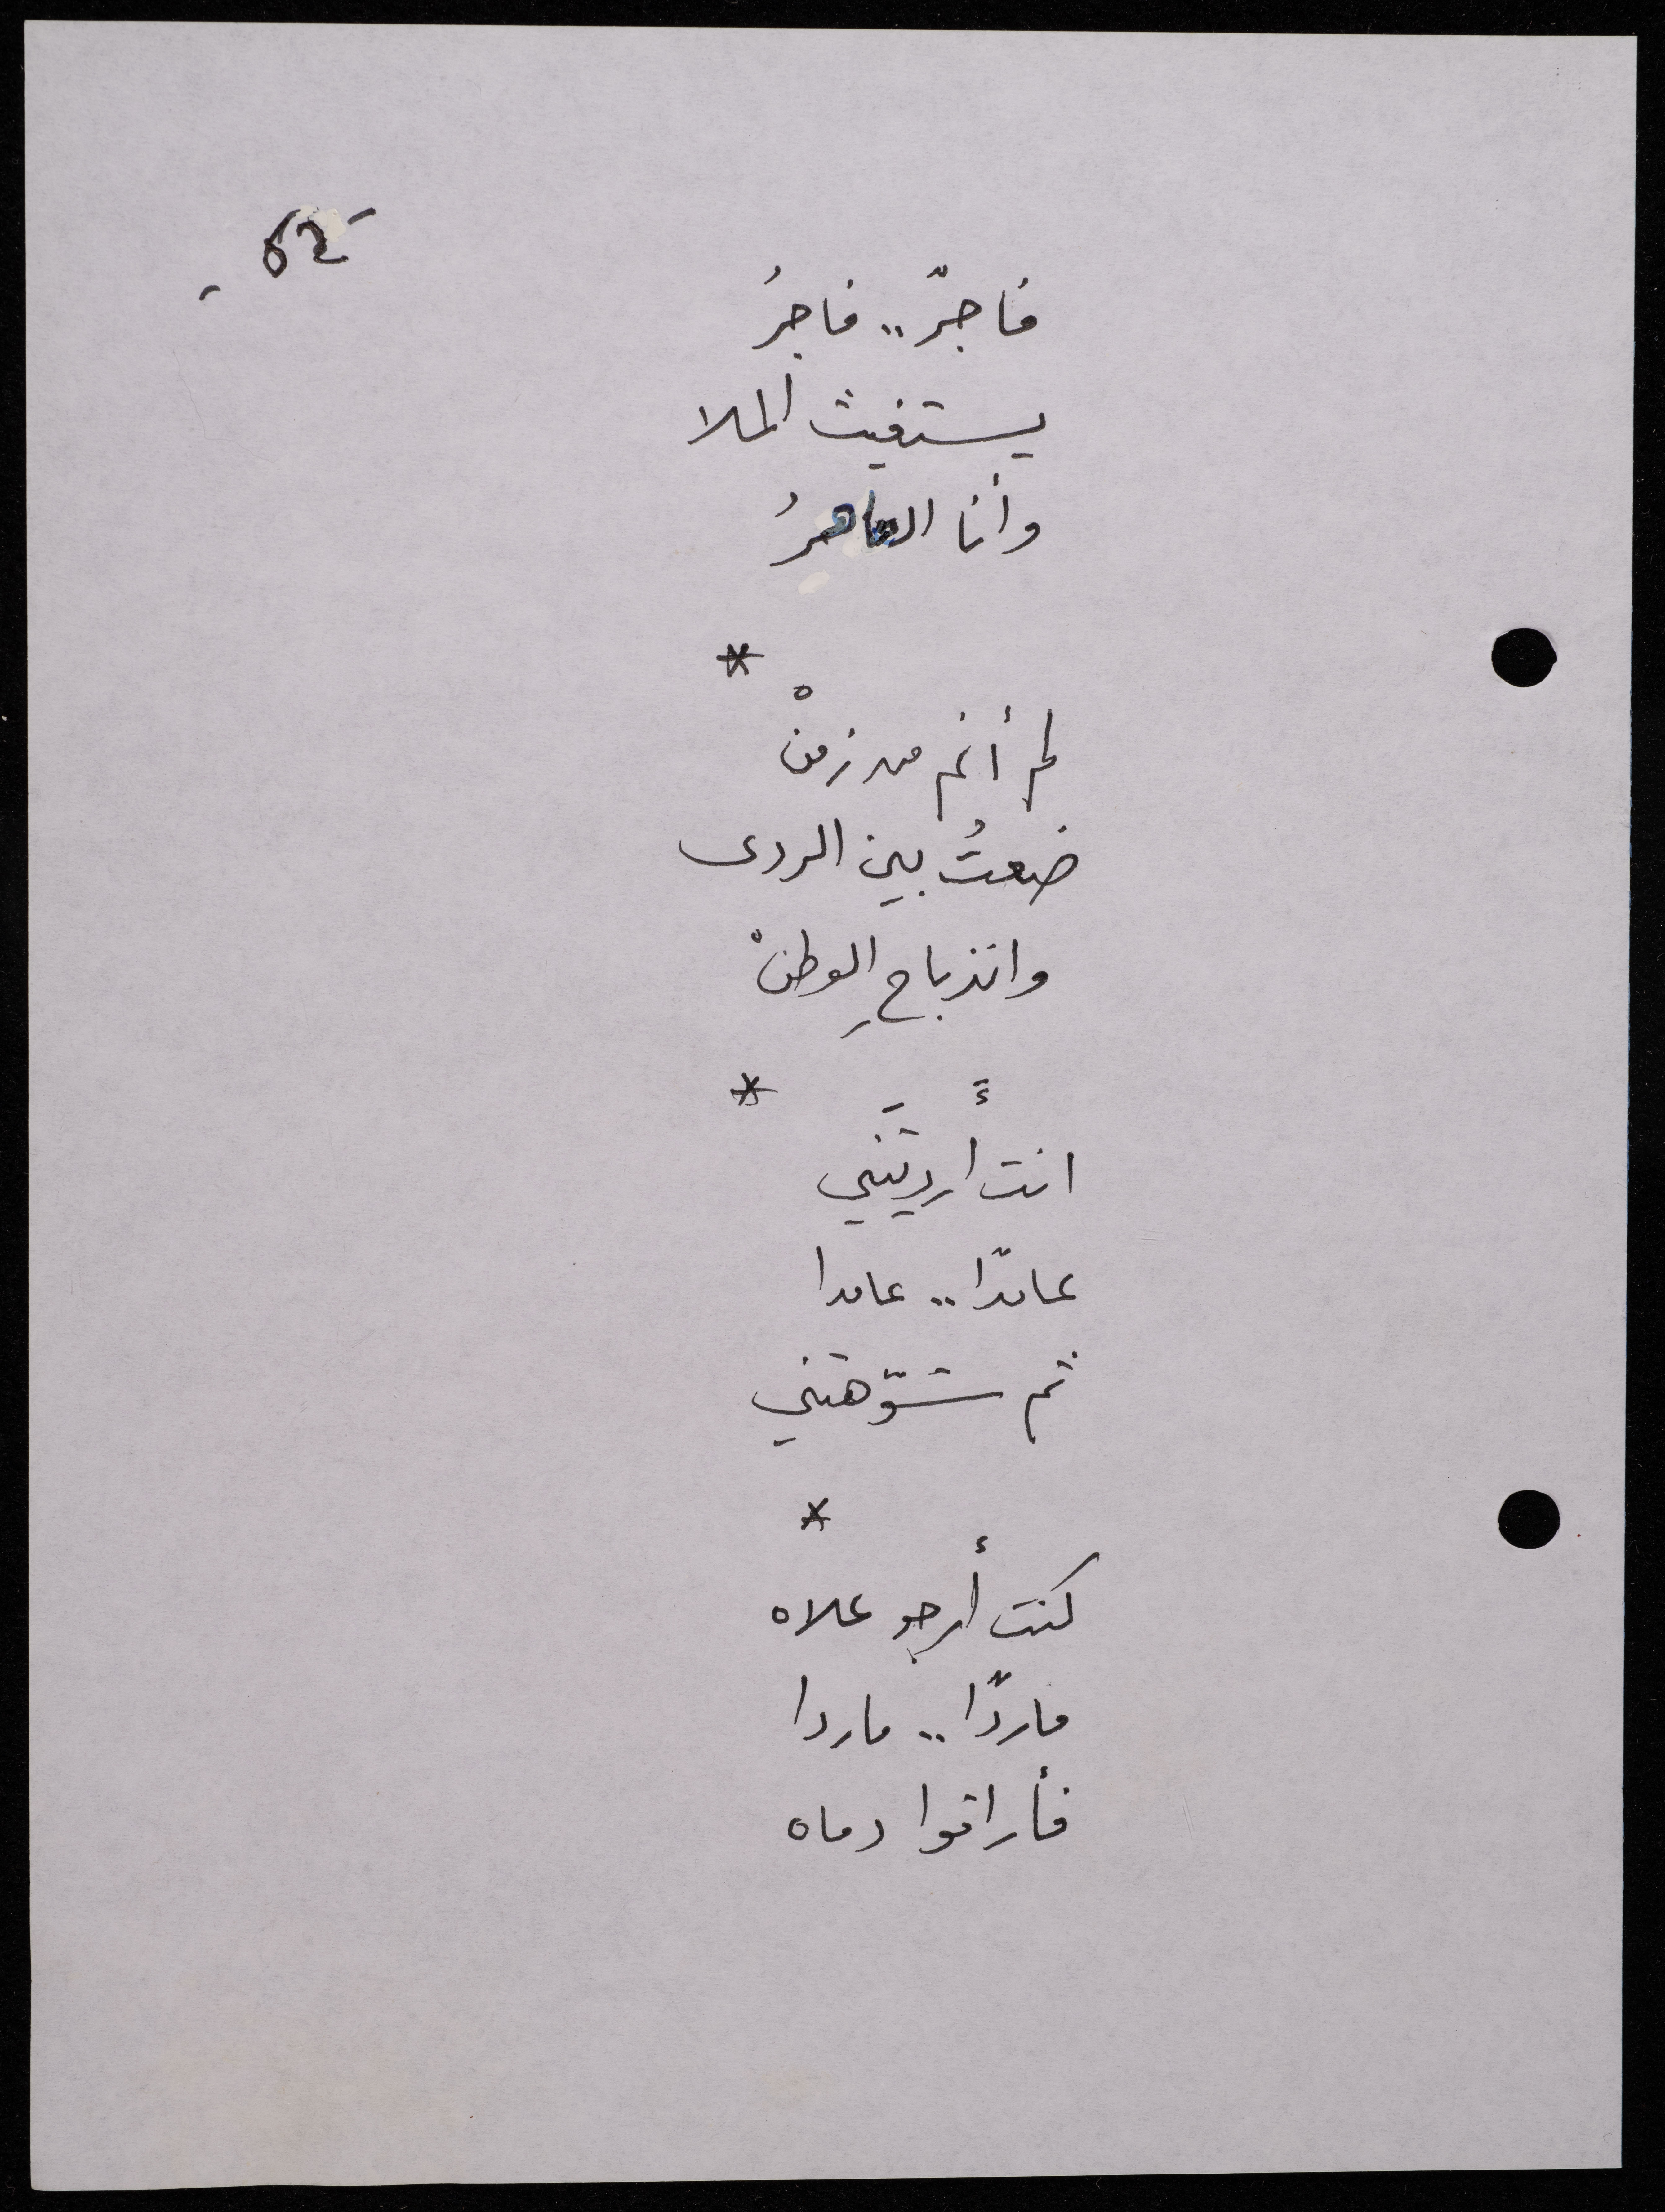 - 52 -
فاجرٌ.. فاجرُ
يستغيث الملا
وأنا العاهرُ
*
لم أنم من زمنْ
ضعتُ بين الردى
وانذباحِ الوطنْ
*
انت أَرديتَني
عامدًا.. عامدا
ثم شوّهتني
*
كنت أرجو علاه
ماردًا.. ماردا
فأراقوا دماه